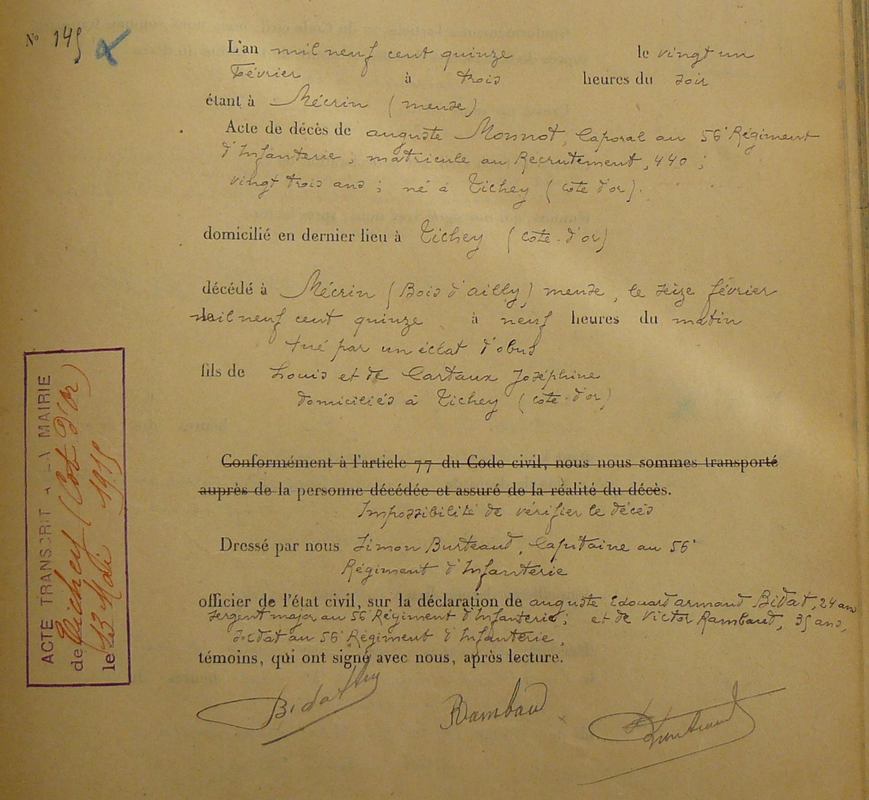 N° 145
L'an mil neuf cent quinze le vingt un
Février à trois heures du soir
étant à Mécrin (meuse)
Acte de décès de auguste Monnot, Caporal au 56e Régiment
d'Infanterie ; matricule au Recrutement, 440 ;
vingt trois ans ; né à Tichey (cote d'or).
domicilié en dernier lieu à Tichey (cote-d'or)
décédé à Mécrin (Bois d'ailly) meuse, le seize février
mil neuf cent quinze à neuf heures du matin
tué par un éclat d'obus
fils de Louis et de Cartaux Joséphine
domiciliés à Tichey (cote-d'or)
Conformément à l'article 77 du Code civil, nous nous sommes transporté
auprès de la personne décédée et assuré de la réalité du décès.
Impossibilité de vérifier le décès
Dressé par nous Simon Burteaud, Capitaine au 56e
Régiment d'Infanterie
officier de l'état civil, sur la déclaration de auguste Edouard armand Bidat, 24 ans
sergent major au 56e Régiment d'Infanterie ; et de Victor Rambaud, 35 ans,
soldat au 56e Régiment d'Infanterie,
témoins, qui ont signé avec nous, après lecture.
Bidat Rambaud
ACTE TRANSCRIT A LA MAIRIE
de Tichey (Cot d'Or)
le 13 Mai 1915